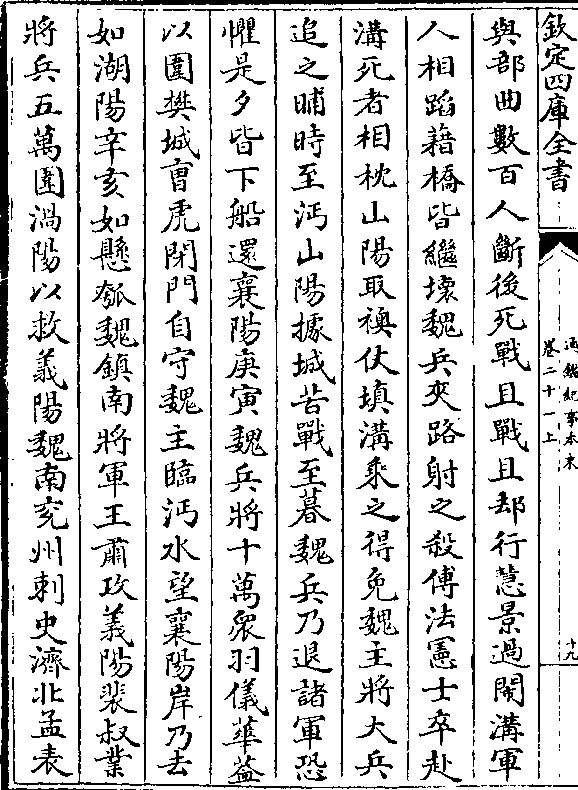 欽定四庫全書
通鑑紀事本末
卷二十一上
十九
與部曲數百人斷後死戰且戰且却行慧景過閙溝軍
人相蹈藉橋皆繼壊魏兵夾路射之殺傅法憲士卒赴
溝死者相枕山陽取襖仗填溝乘之得免魏主將大兵
追之晡時至沔山陽據城苦戰至暮魏兵乃退諸軍恐
懼是夕皆下船還襄陽庚寅魏兵將十萬衆羽儀華葢
以圍樊城曺虎閉門自守魏主臨沔水望襄陽岸乃去
如湖陽辛亥如懸瓠魏鎮南將軍王肅攻義陽裴叔業
將兵五萬圍渦陽以救義陽魏南兖州刺史濟北孟表